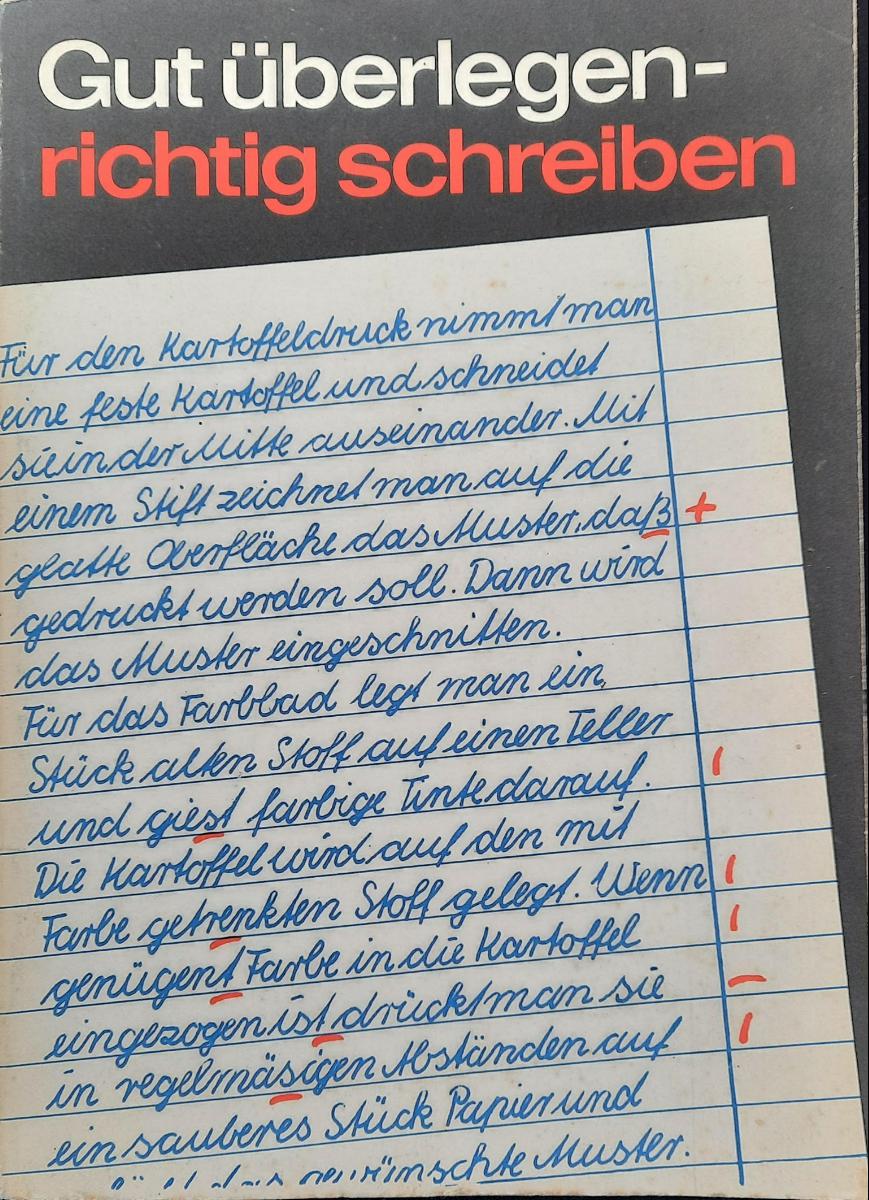 Gut überlegen-
richtig schreiben
Für den Kartoffeldruck nimmt man
eine feste Kartoffel und schneidet
sie in der Mitte auseinander. Mit
einem Stift zeichnet man auf die
glatte Oberfläche das Muster, daß +
gedruckt werden soll. Dann wird
das Muster eingeschnitten.
Für das Farbbad legt man ein
Stück alten Stoff auf einen Teller
und giest farbige Tinte darauf. |
Die Kartoffel wird auf den mit
Farbe getrenkten Stoff gelegt. Wenn |
genügent Farbe in die Kartoffel |
eingezogen ist drückt man sie —
in regelmäsigen Abständen auf |
ein sauberes Stück Papier und
gewünschte Muster.